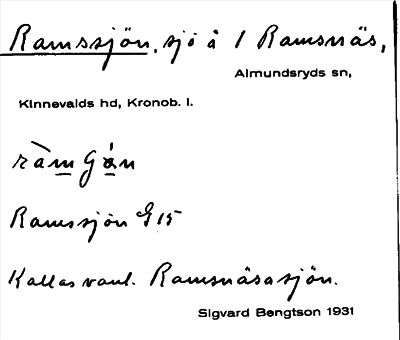 Ramssjön, sjö å 1 Ramsnäs,
Almundsryds sn,
Kinnevalds hd, Kronob. l.
ràmgán
Ramssjön G 15
Kallas vanl. Ramsnäsasjön.
Sigvard Bengtson 1931